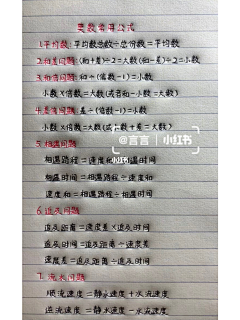 奥数常用公式
1.平均数:平均数总数÷总份数=平均数
2.和差问题:(和+差)÷2=大数(和-差)÷2=小数
3.和倍问题:和÷(倍数-1)=小数
小数×倍数=大数(或者和-小数=大数)
4.差倍问题:差÷(倍数-1)=小数
小数×倍数=大数(或小数+差=大数)
5.相遇问题
相遇路程=速度和×相遇时间
相遇时间=相遇路程÷速度和
速度和=相遇路程÷相遇时间
6.追及问题
追及距离=速度差×追及时间
追及时间=追及距离÷速度差
速度差=追及距离÷追及时间
7.流水问题
顺流速度=静水速度+水流速度
逆流速度=静水速度-水流速度
@言言 | 小红书
小红书